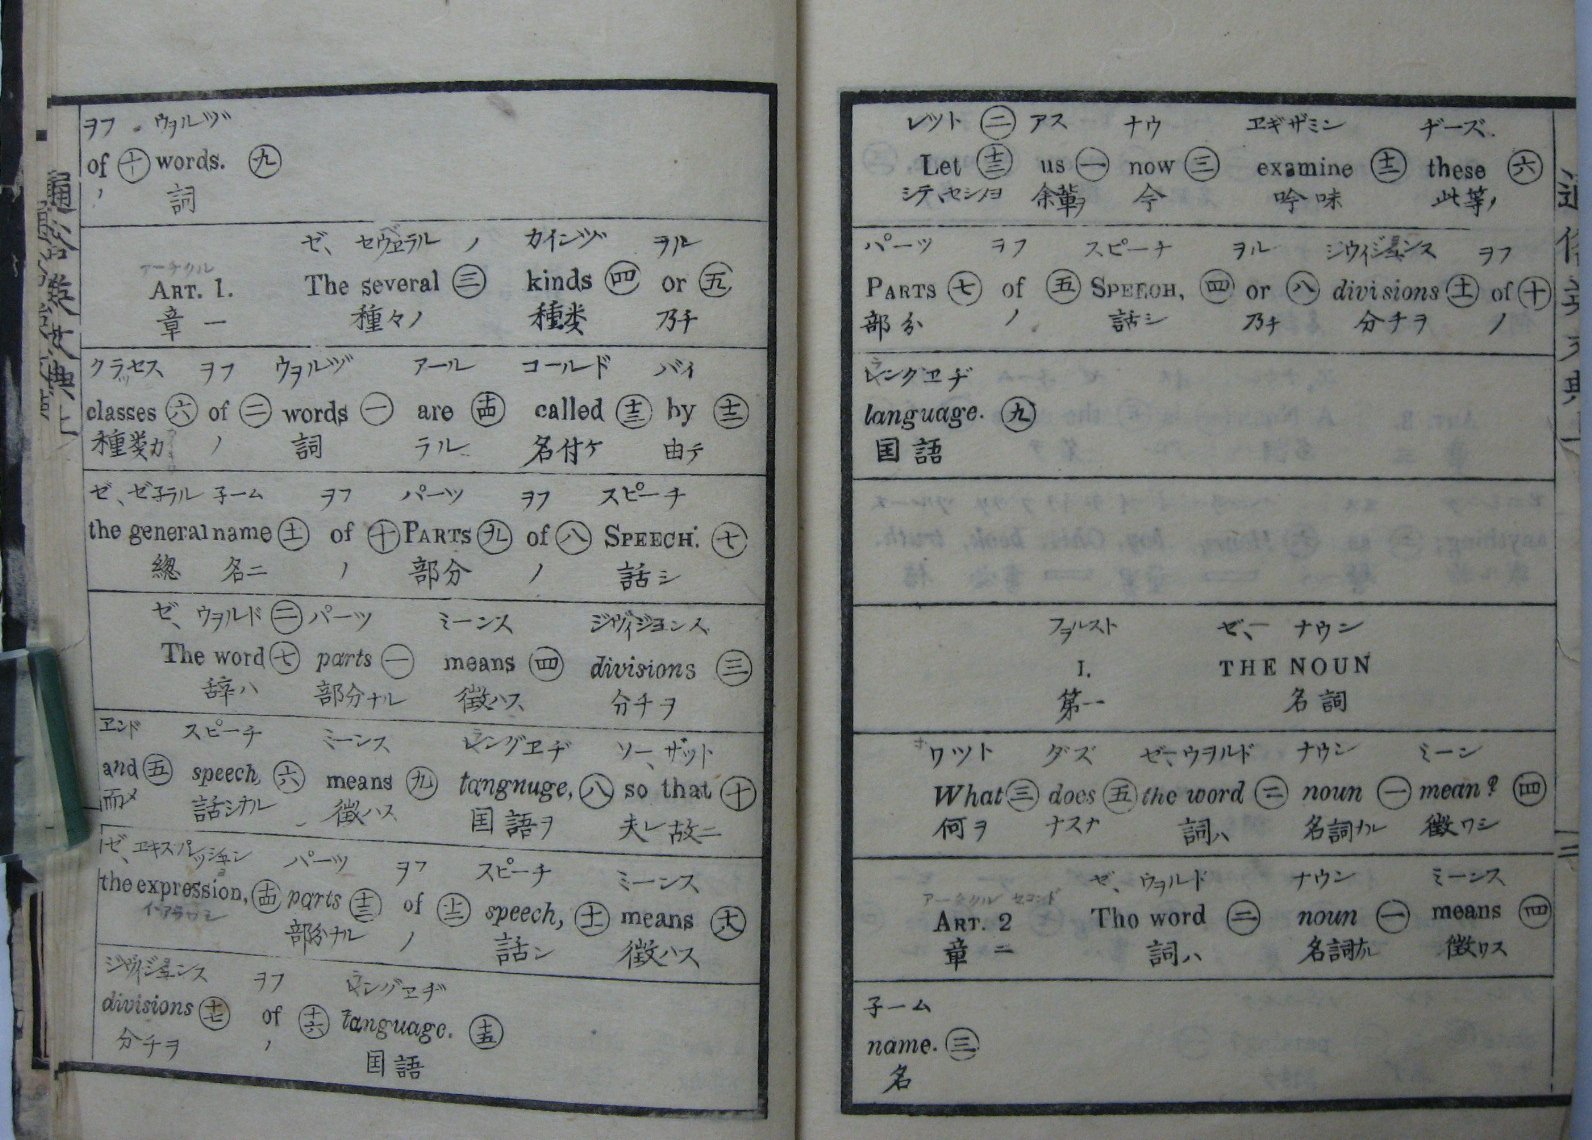 ヲフ ウヲルヅ
of 十 words. 九
ノ 詞
アーチクル
ゼ、セヴエラル ノ カインヅ ヲル
ART. 1. The several 三 kinds 四 or 五
章 一 種々ノ 種類 乃チ
クラッセス ヲフ ウヲルヅ アール コールド バイ
classes 六 of 二 words 一 are 十四 called 十三 by 十二
種類カ ノ 詞 ラル 名付ケ 由テ
ゼ、ゼ子ラル 子ーム ヲフ パーツ ヲフ スピーチ
the general name 十一 of 十 PARTS 九 of 八 SPEECH. 七
總 名ニ ノ 部分 ノ 話シ
ゼ、ウヲルド 二 パーツ ミーンス ジヴイジヨンス
The word 七 parts 一 means 四 divisions 三
辞ハ 部分ナル 徴ハス 分チヲ
ヱンド スピーチ ミーンス レングヱヂ ソー、ザット
and 五 speech 六 means 九 langnuge, 八 so that 十
而メ 話シナル 徴ハス 国語ヲ 夫レ故ニ
ゼ、ヱキスパレッション パーツ ヲフ スピーチ ミーンス
the expression, 十四 parts 十三 of 十二 speech, 十一 means 十八
部分ナル ノ 話シ 徴ハス
ジヴイジヨンス ヲフ ラングヱヂ
divisions 十七 of 十六 language. 十五
分チヲ ノ 国語
レット 二 アス ナウ ヱギザミン ヂーズ
Let 十三 us 一 now 三 examine 十二 these 六
余輩ヲ 今 吟味 此等ノ
パーツ ヲフ スピーチ ヲル ジウイジヨンス ヲフ
PARTS 七 of 五 SPEECH, 四 or 八 divisions 十一 of 十
部分 ノ 話シ 乃チ 分チヲ ノ
レングヱヂ
language. 九
国語
フヲルスト ゼ、ナウン
I. THE NOUN
第一 名詞
ワット ダズ ゼ、ウヲルド ナウン ミーン
What 三 does 五 the word 二 noun 一 mean? 四
何ヲ ナスナ 詞ハ 名詞ナル 徴ワシ
アーチクル セコンド ゼ、ウヲルド ナウン ミーンス
ART. 2 Tho word 二 noun 一 means 四
章 二 詞ハ 名詞ナル 徴ワス
子ーム
name. 三
名